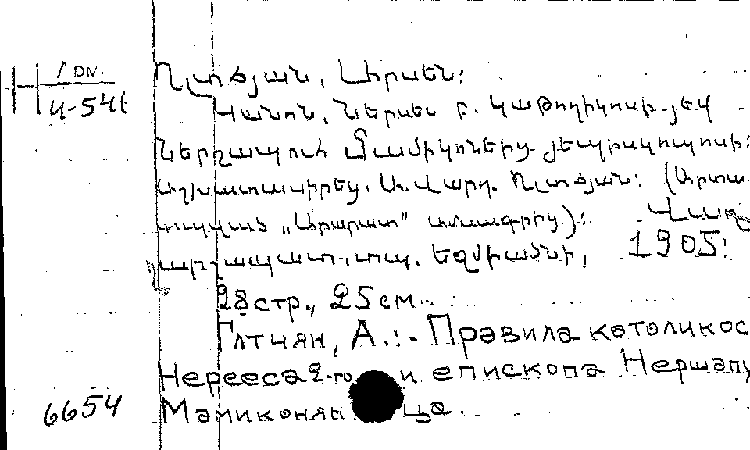 1 ON.
Ղլտճյան, Արսեն:
Կանոն, Ներսես Բ. Կաթողիկոսի յեվ
Ներշապուհ Մամիկոներց յեպիսկոպոսի:
Աշխատասիրեց. Ա. Վարդ. Ղլտճյան: (Արտա
տպված „Արարատ" ամսագրից):
տպ. Եջմիածնի, 1905:
28 стр., 25 см.
Глтчян, А.:. Правила католикос
Нерсеса 2-го и епископа Нершапу
6654